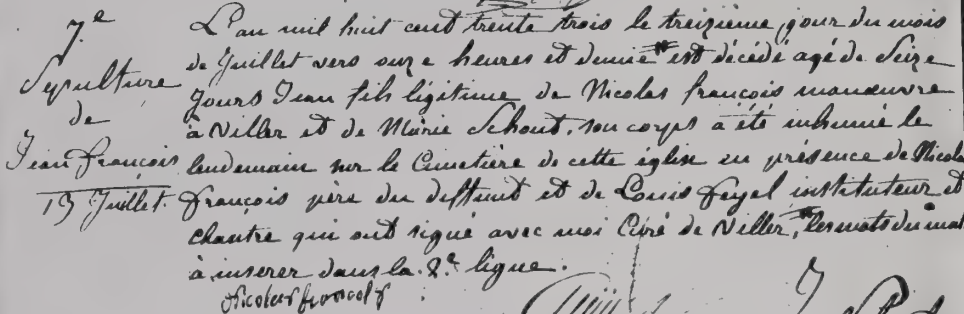 7.e
Sépulture
de
Jean françois
13 Juillet.
L'an mil huit cent trente trois le treizième jour du mois
de Juillet vers onze heures et demie est décédé agé de Seize
jours Jean fils légitime de Nicolas françois manœuvre
à Niller et de Marie Schout, son corps a été inhumé le
lendemain sur le Cimetière de cette église en présence de Nicolas
françois père du deffunt et de Louis feyel instituteur et
chantre qui ont signé avec moi Curé de Niller, les mots du mat
à inserer dans la 2.e ligne.
Nicolas francois